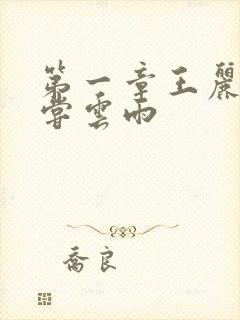 第一章王麗
嘗雲雨
喬良